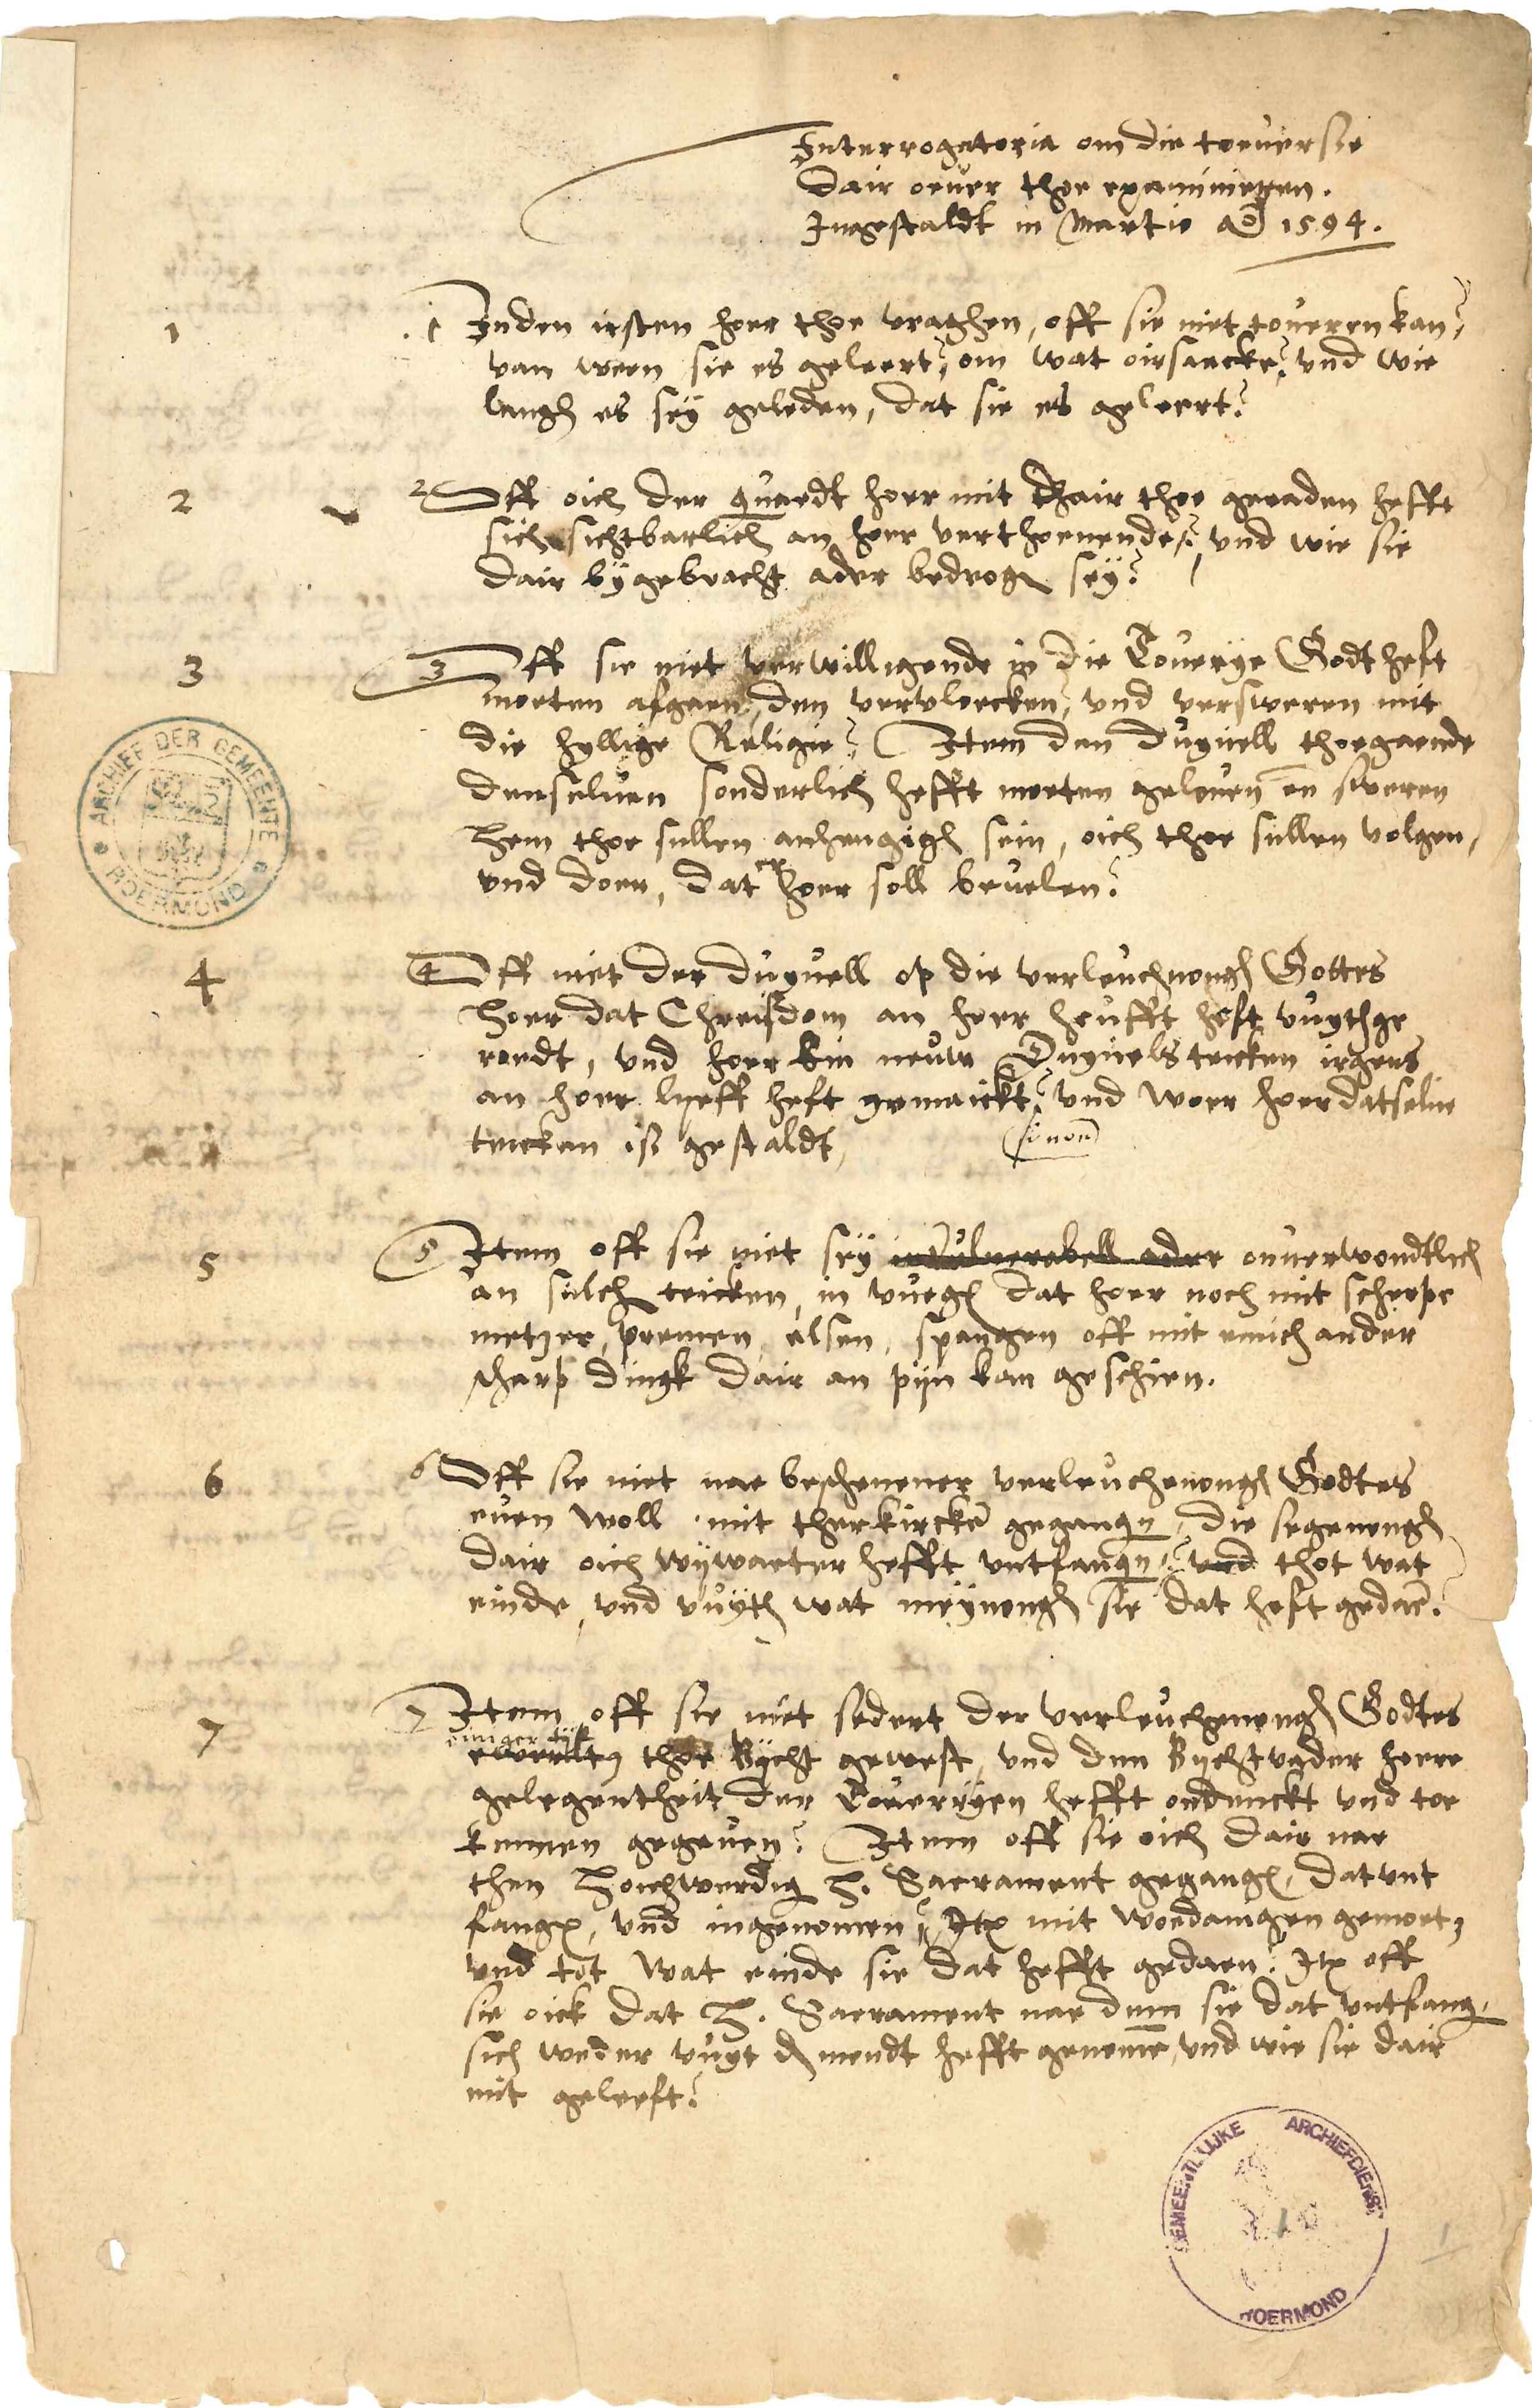 Interrogatoria om die toeuersie
dair oeuer thoe examinieren.
Ingestaldt in Martio Ao 1594.
1
1 Inden irsten hoer thoe vraghen, off sie niet toueren kan?
van ween sie es geleert? om wat oirsaecke? vnd wie
langh es seÿ geleden, dat sie es geleert?
2
2 Off oich der quaedt hoer mit dhair thoe geraden hefft
sich sichtbarlich an hoer verthoenende? vnd wie sie
dair bÿgebracht ader bedrogen seÿ?
3
3 Off sie niet verwilligende in die Touerÿe Godt heft
moeten afgaen, den vervloecken, vnd versweren mit
die hyllige Religie? Item den duyuell thoegaende
denseluen sonderlich hefft moeten gelouen en sweren
hem thoe sullen anhengigh sein, oich thoe sullen volgen,
vnd doen, dat er hoer soll beuelen?
4
4 Off niet der duyuell op die verleuchnongh Gottes
hoer dat Chreisdom an hoer heufft heft vuythge
roedt, vnd hoer ein neuw Duyuels teicken irgens
an hoer lyeff heft gemaickt? vnd woer hoer datselue
teicken is gestaldt,
si non
5
5 Item off sie niet seÿ invulnerabell ader onuerwondtlich
an sulch teicken, in vuegh dat hoer noch mit scherpe
metzer, premen, elsen, spangen off mit einich ander
scharp dingk dair an pijn kan geschien.
6
6 Off sie niet nae beschenener verleuchenongh Godtes
euen woll mit therkircken gegangen, die segenongh
dair oich wÿwaeter hefft untfangen? vnd thot wat
einde, vnd vuÿth wat meÿnongh sie dat heft gedaen.
7
7 Item off sie niet sedert der verleuchenongh Godtes
einiger tijt
thoe Bÿcht gewest, vnd den Bychtvader hoere
gelegentheit der Toeuerÿen hefft ondeckt vnd toe
kennen gegeuen? Item off sie oich dair nae
then hoichwerdig h. Sacrament gegangen, dat unt
fangen, vnd ingenomen? Item mit woedanigen gemoet,
vnd tot wat einde sie dat hefft gedaen? Item off
sie oick dat h. Sacrament nae dem sie dat untfang.
sich weder vuyt den mondt hefft genomen, vnd wie sie dair
mit geleeft?
ARCHIEF DER GEMEENTE
ROERMOND
GEMEENTELIJKE ARCHIEFDIENST
ROERMOND
1